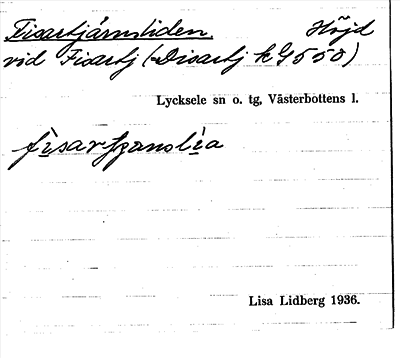 Fisartjärnsliden. Höjd
vid Fisartj (Disartj k 9550)
Lycksele sn o. tg, Västerbottens l.
Lisa Lidberg 1936.